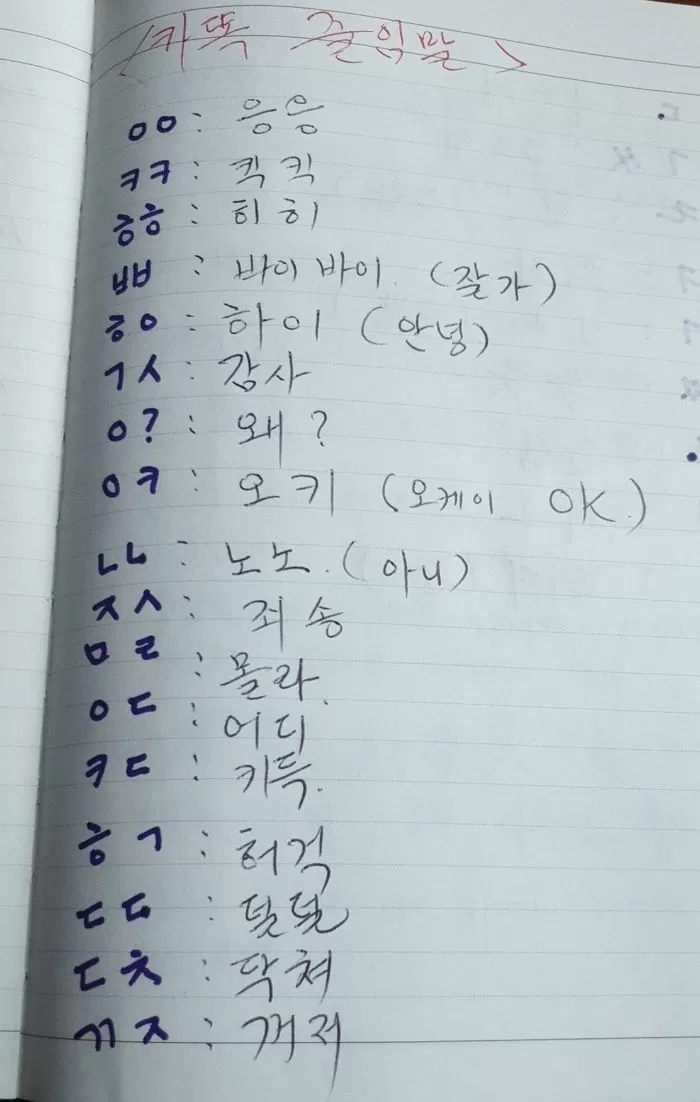 <카똑 줄임말>
ㅇㅇ : 응응
ㅋㅋ : 킥킥
ㅎㅎ : 히히
ㅃㅃ : 바이바이. (잘가)
ㅎㅇ : 하이 (안녕)
ㄱㅅ : 감사
ㅇ? : 왜?
ㅇㅋ : 오키 (오케이 OK.)
ㄴㄴ : 노노. (아니)
ㅈㅅ : 죄송
ㅁㄹ : 몰라.
ㅇㄷ : 어디
ㅋㄷ : 키득.
ㅎㄱ : 허걱
ㄷㄷ : 덜덜
ㄷㅊ : 닥쳐
ㄲㅈ : 꺼저